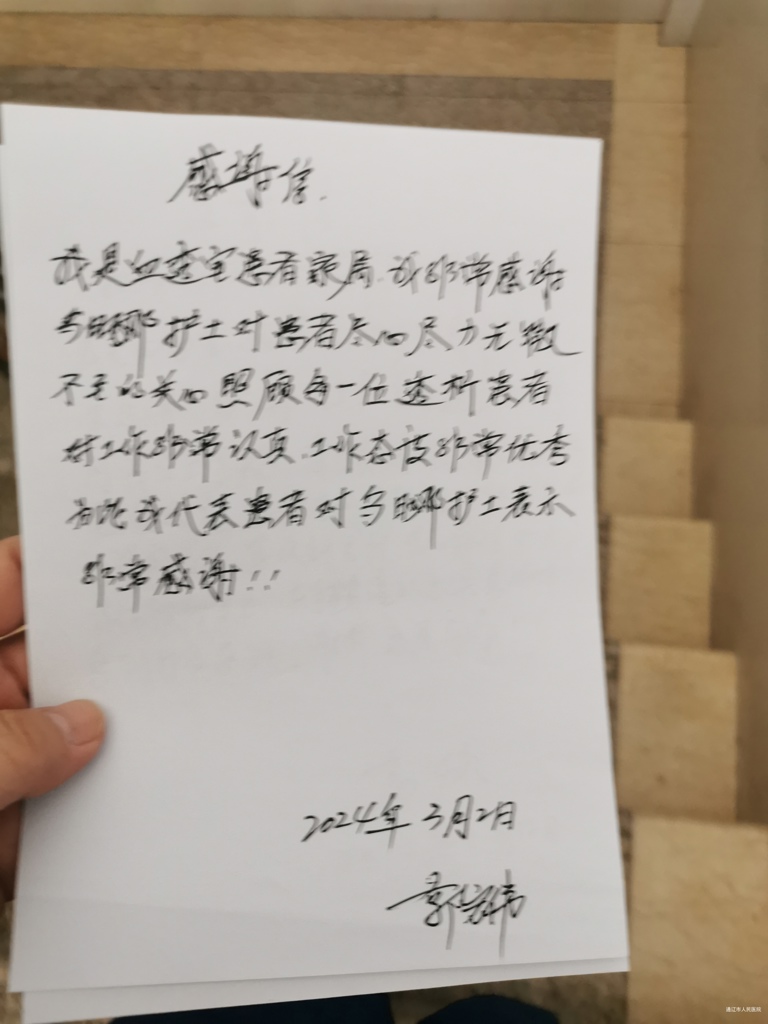 感谢信.
我是血透室患者家属.我非常感谢
护士对患者尽心尽力无微
不至的关心照顾每一位透析患者
对工作非常认真.工作态度非常优秀
为此我代表患者对 护士表示
非常感谢!!
2024年3月2日
郭
通辽市人民医院